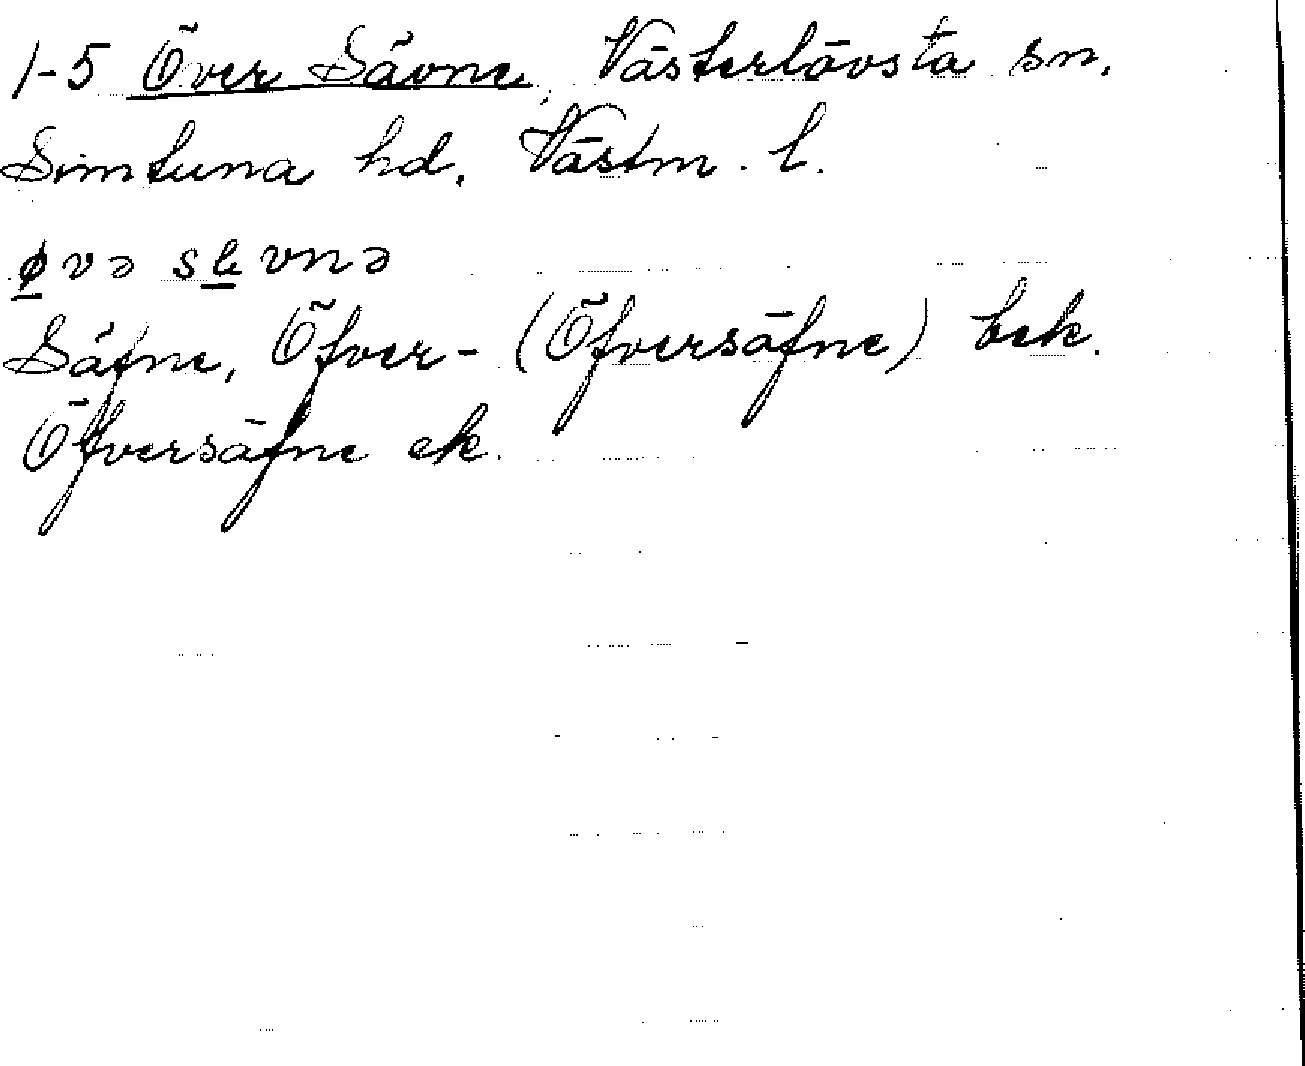 1-5 Över Sävne, Västerlövsta sn.
Simtuna hd. Västm. l.
øvə sɛvnə
Säfne, Öfver- (Öfversäfne) bek.
Öfversäfne ek.